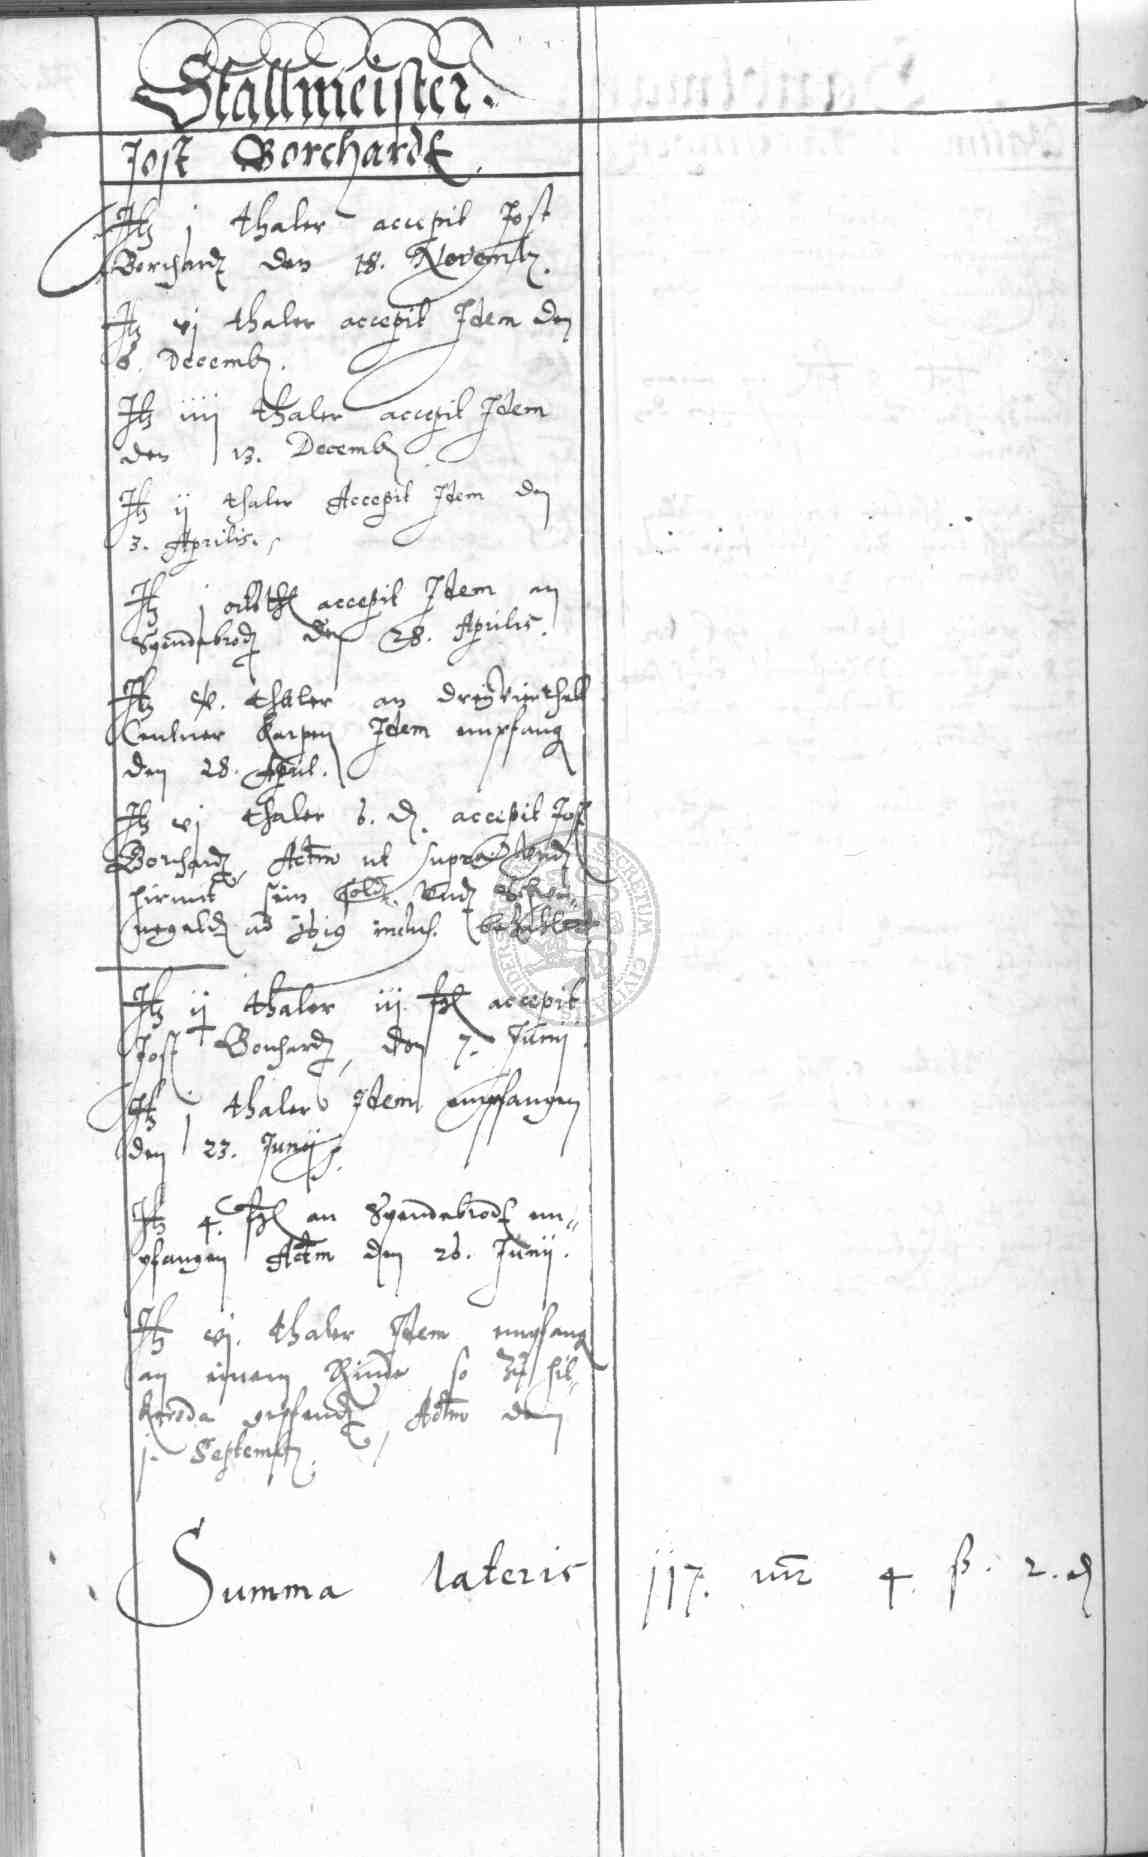 Stallmeister.
Jost Borchardt.
It j thaler accepit Jost
Borchardt den 18. Novemb.
It vj thaler accepit Idem den
6. Decemb.
It iiij thaler accepit Idem
den 13. Decemb.
It ij thaler Accepit Idem den
3. Aprilis.
It j accepit Idem an
Spendebrodt den 28. Aprilis.
It thaler an dreyvierthell
Centner Karpen Idem empfang
den 28. April.
It vj thaler 6. d. accepit Jost
Borchardt, Actm ut supra Vnd
hirmit sein Vnd
ad inclus. bezahlet
It ij thaler iij accepit
Jost Borchardt, den 7. Junij.
It j thaler Idem empfangen
den 23. Junij.
It 4. an Spendebrodt em=
pfangen Actm den 26. Junij.
It vj. thaler Idem empfang
an einem Rinde so zu hil=
keroda gepfendt, Actm den
j. Septemb.
Summa lateris 117. mr 4. ß. 2. d
SECRETUM CIVITATIS